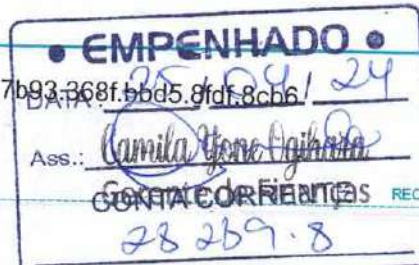 • EMPENHADO •
7b93.368f.bbd5.8fdf.8cb6
DATA: 25 / 04 / 24
Ass.: Camila Yone Ogihara
Gerente de Finanças
CONTA CORRENTE
REC
28289.8